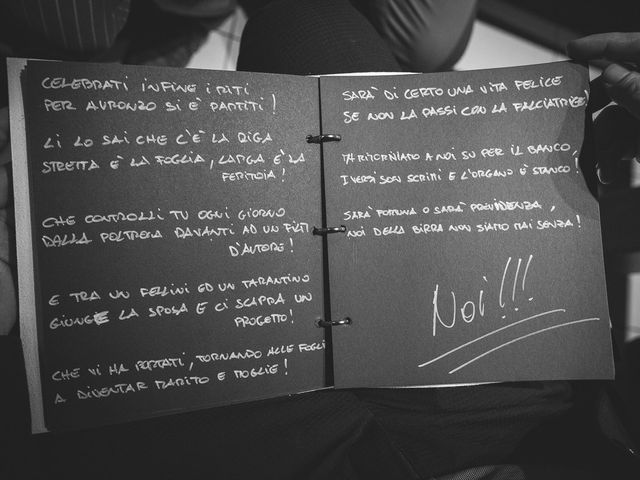 CELEBRATI INFINE I RITI
PER AURONZO SI È PARTITI!
LÌ LO SAI CHE C'È LA RIGA
STRETTA È LA FOGLIA, LARGA È LA
FERITOIA!
CHE CONTROLLI TU OGNI GIORNO
DALLA POLTRONA DAVANTI AD UN FILM
D'AUTORE!
E TRA UN FELLINI ED UN TARANTINO
GIUNGE LA SPOSA E CI SCAPPA UN
PROGETTO!
CHE VI HA PORTATI, TORNANDO ALLE FOGLIE
A DIVENTAR MARITO E MOGLIE!
SARÀ DI CERTO UNA VITA FELICE
SE NON LA PASSI CON LA FALCIATRICE!
MA RITORNIAMO A NOI SU PER IL BANCO,
I VERSI SON SCRITTI E L'ORGANO È STANCO!
SARÀ FORTUNA O SARÀ PROVVIDENZA,
NOI DELLA BIRRA NON SIAMO MAI SENZA!
NOI!!!